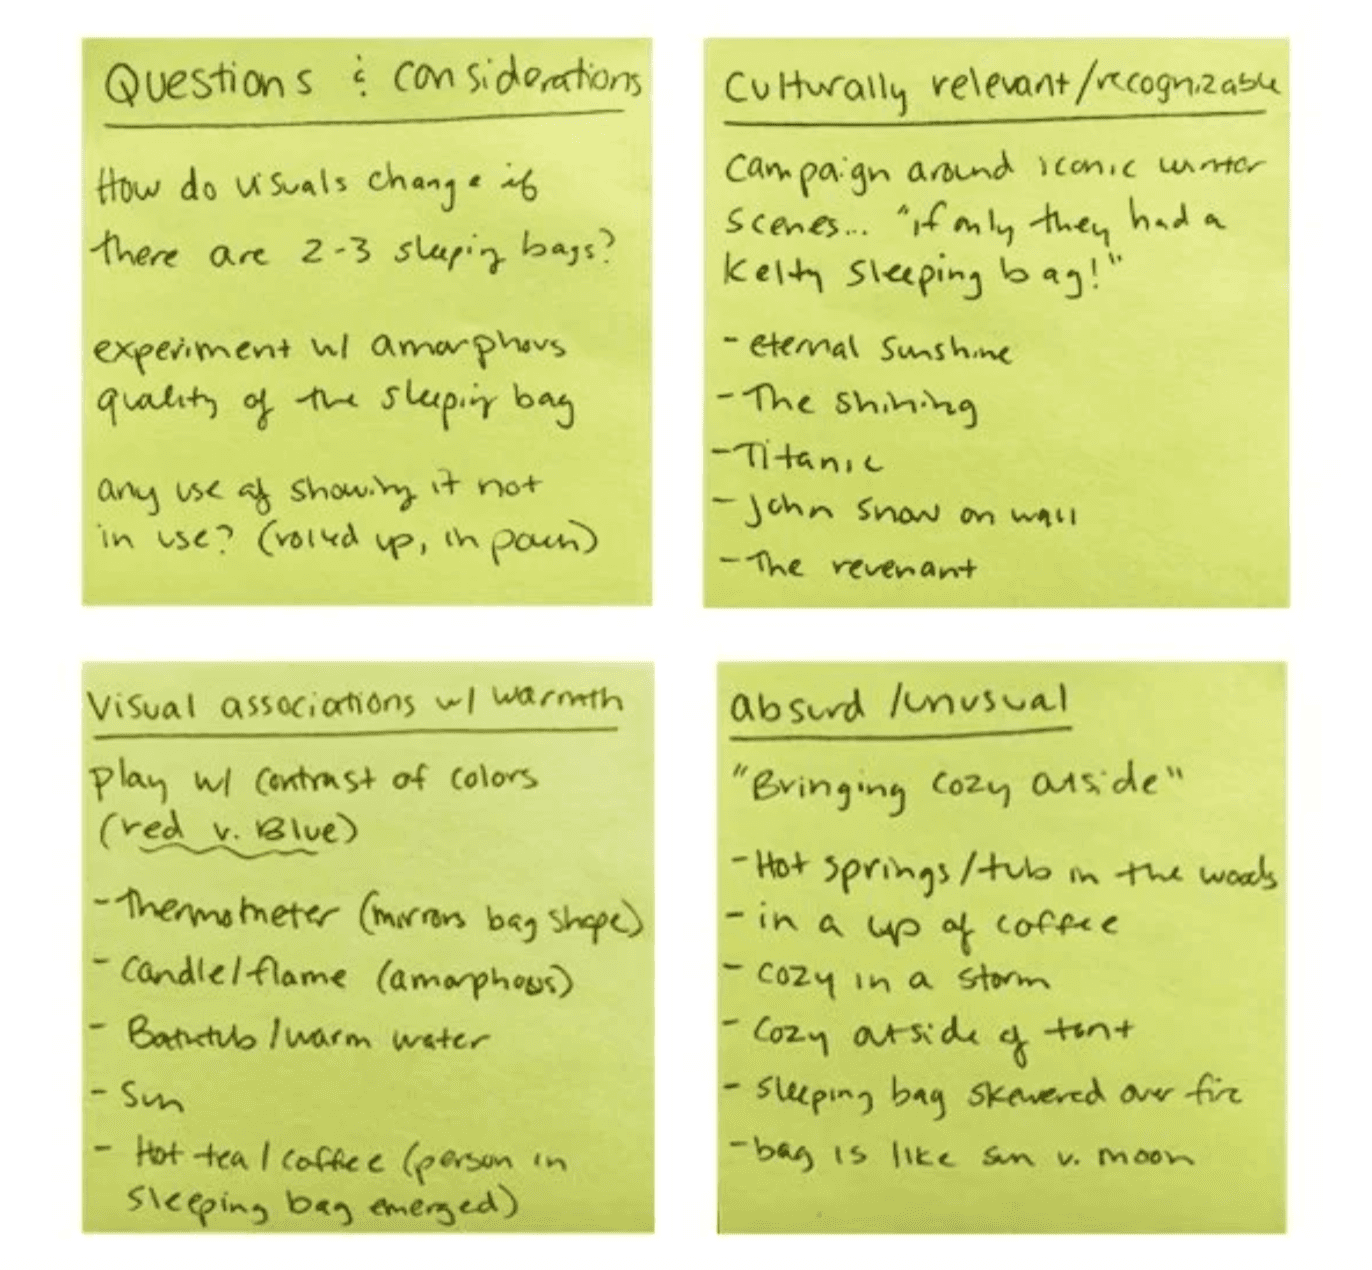 Questions & considerations
How do visuals change if
there are 2-3 sleeping bags?
experiment w/ amorphous
quality of the sleeping bag
any use of showing it not
in use? (rolled up, in pouch)
Culturally relevant/recognizable
Campaign around iconic winter
scenes... "if only they had a
Kelty sleeping bag!"
- eternal sunshine
- The shining
- Titanic
- John snow on wall
- The revenant
Visual associations w/ warmth
play w/ contrast of colors
(red v. Blue)
- Thermometer (mirrors bag shape)
- Candle/flame (amorphous)
- Bathtub/warm water
- Sun
- Hot tea/coffee (person in
sleeping bag emerged)
absurd/unusual
"Bringing cozy outside"
- Hot springs/tub in the woods
- in a cup of coffee
- cozy in a storm
- cozy outside of tent
- sleeping bag skewered over fire
- bag is like sun v. moon